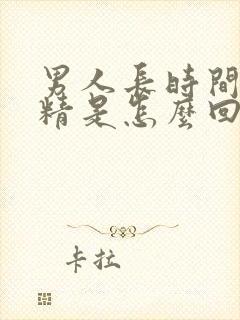 男人長時間
精是怎麼回
卡拉